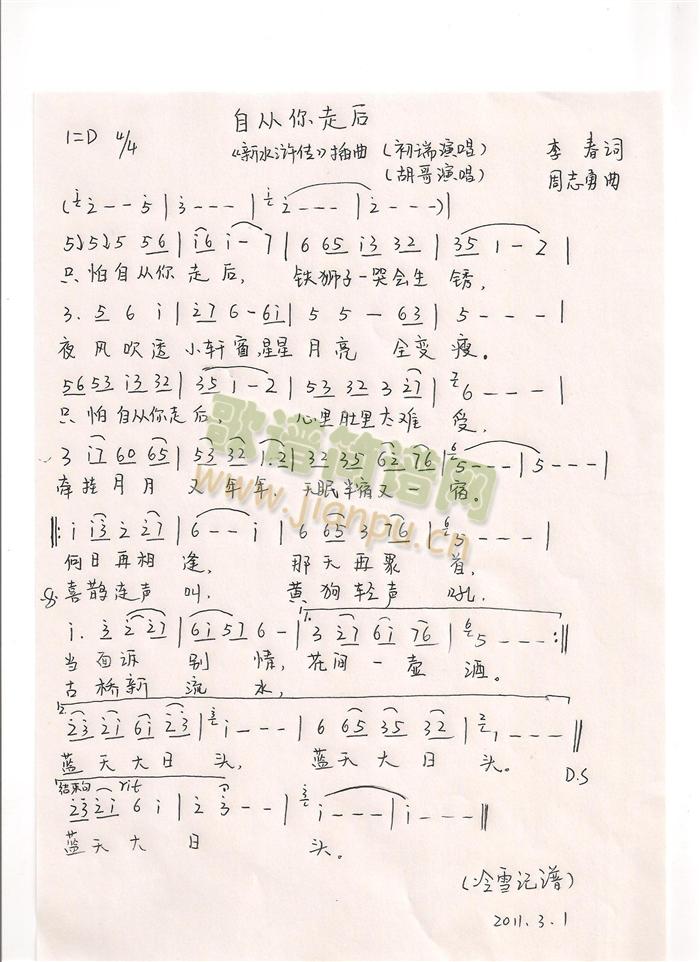 自从你走后
1=D 4/4
《新水浒传》插曲 (初瑞演唱) 李春词
(胡哥演唱) 周志勇曲
(2 - - - 5 | 3 - - - | 2 - - - | 2 - - -) |
5 5 5 5 6 | i 6 i - 7 | 6 6 5 i 3 3 2 | 3 5 1 - 2 |
只怕自从你走后, 铁狮子一哭会生锈,
3. 5 6 i | 2 7 6 - 6 i | 5 5 - 6 3 | 5 - - - |
夜风吹透小轩窗,星星月亮全变瘦。
5 6 5 3 i 3 3 2 | 3 5 1 - 2 | 5 3 3 2 3 2 7 | 6 - - - |
只怕自从你走后, 心里肚里太难受,
3 i 7 6 0 6 5 | 5 3 3 2 1. 2 | 3 2 3 5 6 2 7 6 | 5 - - - | 5 - - - |
牵挂月月又年年,天眠半宿又一宿。
‖: i i 3 2 2 7 | 6 - - i | 6 6 5 3 7 6 | 5 - - - |
何日再相逢, 那天再聚首,
喜鹊连声叫. 黄狗轻声吼.
i. 3 2 2 7 | 6 i 5 7 6 - | 1. 3 2 7 6 i 7 6 | 5 - - - :‖
当面诉别情, 花间一壶酒。
古桥新流水,
2. 2 3 2 i 6 i 2 3 | i - - - | 6 6 5 3 5 3 2 | 1 - - - ‖
蓝天大日头, 蓝天大日头。 D.S
结束句 rit
2 3 2 i 6 i | 2 3 - - | i - - - | i - - - ‖
蓝天大日头。
(冷雪记谱)
2011.3.1
歌谱简谱网
www.jianpu.cn